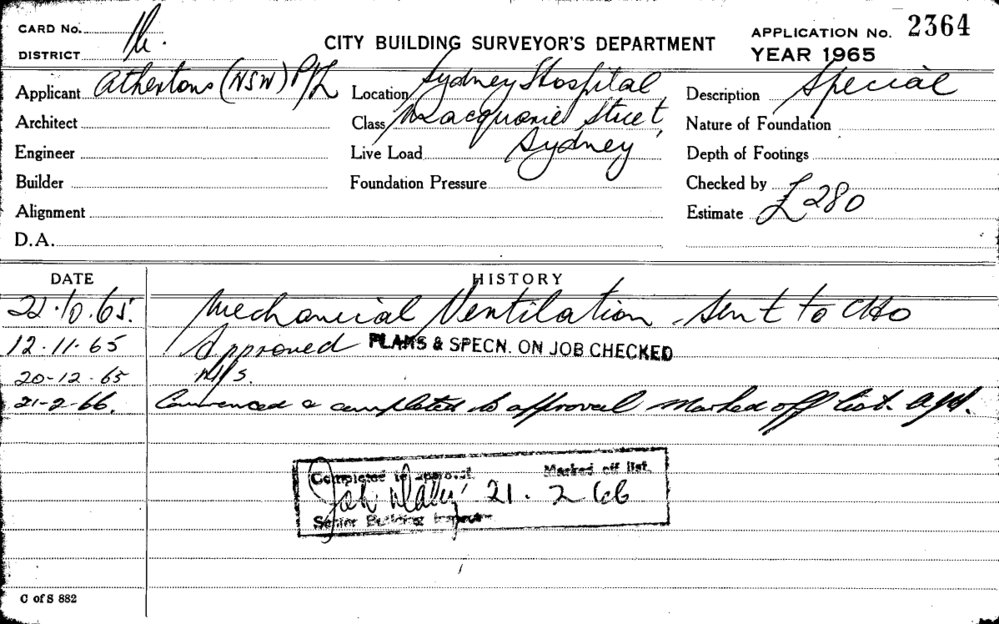 CARD No.
DISTRICT
CITY BUILDING SURVEYOR'S DEPARTMENT
APPLICATION No. 2364
YEAR 1965
Applicant Athertons (NSW) P/L
Location Sydney Hospital
Description Special
Architect
Class Macquarie Street
Nature of Foundation
Engineer
Live Load Sydney
Depth of Footings
Builder
Foundation Pressure
Checked by
Alignment
Estimate £280
D.A.
DATE HISTORY
22.10.65. Mechanical Ventilation. Sent to CHO
12.11.65 Approved PLANS & SPECN. ON JOB CHECKED
20-12.65 N/S.
21-2-66. Commenced & completed to approval Marked off list.
Completed to approval. Marked off list.
21.2 66
Senior Building Inspector
C of S 882